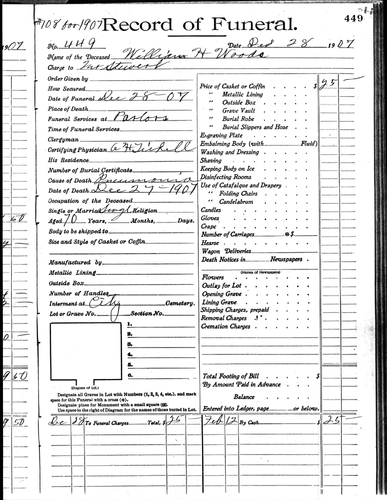 #108 for 1907 Record of Funeral. 449
No. 449 Date Dec 28 1907
Name of the Deceased William H Woods
Charge to
Order Given by
How Secured
Date of Funeral Dec 28-07
Place of Death
Funeral Services at Parlors
Time of Funeral Services
Clergyman
Certifying Physician
His Residence
Number of Burial Certificate
Cause of Death Pneumonia
Date of Death Dec 27-1907
Occupation of the Deceased
Single or Married Singl Religion
Aged 70 Years, Months, Days.
Body to be shipped to
Size and Style of Casket or Coffin
Manufactured by
Metallic Lining
Outside Box
Number of Handles
Interment at City Cemetery.
Lot or Grave No. Section No.
1.
2.
3.
4.
5.
6.
(Diagram of Lot.)
Designate all Graves in Lot with Numbers (1, 2, 3, 4, etc.) and mark
space for this Funeral with a cross (+).
Designate place for Monument with a small square (□).
Use space to the right of Diagram for the names of those buried in Lot.
Dec 28 To Funeral Charges Total, $ 25-
Price of Casket or Coffin $ 25-
" Metallic Lining
" Outside Box
" Grave Vault
" Burial Robe
" Burial Slippers and Hose
Engraving Plate
Embalming Body (with Fluid)
Washing and Dressing
Shaving
Keeping Body on Ice
Disinfecting Rooms
Use of Catafalque and Drapery
" Folding Chairs
" Candelabrum
Candles
Gloves
Crape
Number of Carriages @ $
Hearse
Wagon Deliveries
Death Notices in Newspapers
(Names of Newspapers)
Flowers
Outlay for Lot
Opening Grave
Lining Grave
Shipping Charges, prepaid
Removal Charges
Cremation Charges
Total Footing of Bill $
By Amount Paid in Advance
Balance
Entered into Ledger, page or below.
Feb 12 By Cash $ 25